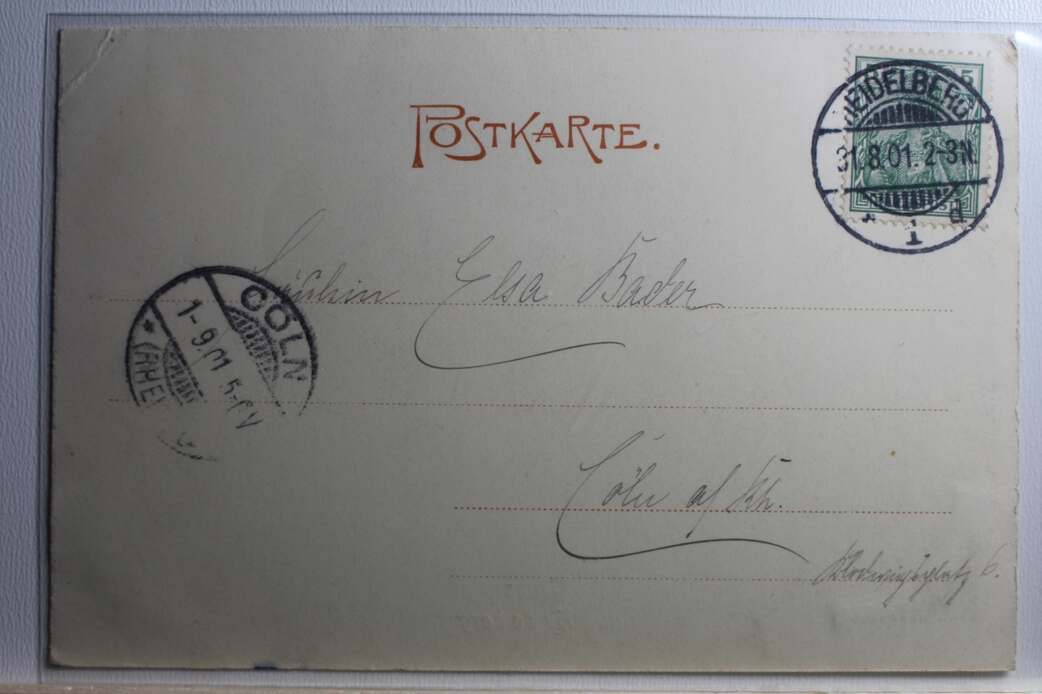 POSTKARTE.
HEIDELBERG
31.8.01. 2-3N.
* 1 d
5
Fräulein Elsa Bader
CÖLN
1-9.01 5-6V
* (RHEI
Cöln a/Rh.
Chlodwigsplatz 6.